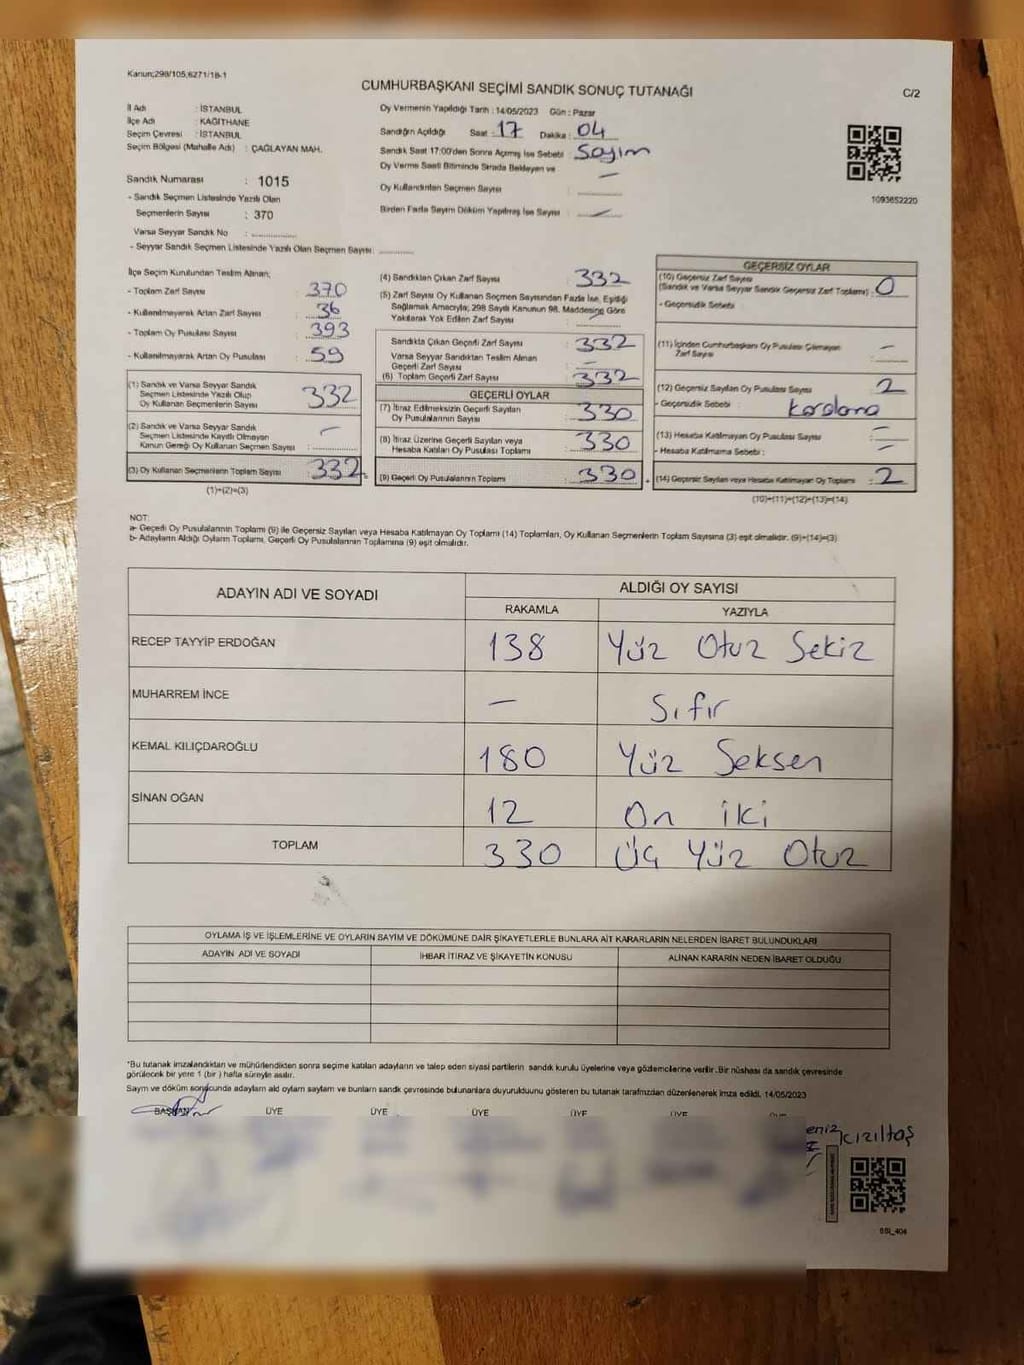 Kanun;298/105,6271/18-1
CUMHURBAŞKANI SEÇİMİ SANDIK SONUÇ TUTANAĞI
C/2
İl Adı : İSTANBUL
İlçe Adı : KAĞITHANE
Seçim Çevresi : İSTANBUL
Seçim Bölgesi (Mahalle Adı) : ÇAĞLAYAN MAH.
Sandık Numarası : 1015
- Sandık Seçmen Listesinde Yazılı Olan
Seçmenlerin Sayısı : 370
Varsa Seyyar Sandık No :
- Seyyar Sandık Seçmen Listesinde Yazılı Olan Seçmen Sayısı:
Oy Vermenin Yapıldığı Tarih : 14/05/2023 Gün : Pazar
Sandığın Açıldığı Saat : 17 Dakika : 04
Sandık Saat 17:00'den Sonra Açılmış İse Sebebi : Sayım
Oy Verme Saati Bitiminde Sırada Bekleyen ve
Oy Kullandırılan Seçmen Sayısı : —
Birden Fazla Sayım Döküm Yapılmış İse Sayısı : —
1093652220
İlçe Seçim Kurulundan Teslim Alınan;
- Toplam Zarf Sayısı : 370
- Kullanılmayarak Artan Zarf Sayısı : 36
- Toplam Oy Pusulası Sayısı : 393
- Kullanılmayarak Artan Oy Pusulası : 59
(1) Sandık ve Varsa Seyyar Sandık
Seçmen Listesinde Yazılı Olup
Oy Kullanan Seçmenlerin Sayısı : 332
(2) Sandık ve Varsa Seyyar Sandık
Seçmen Listesinde Kayıtlı Olmayan
Kanun Gereği Oy Kullanan Seçmen Sayısı : —
(3) Oy Kullanan Seçmenlerin Toplam Sayısı : 332
(1)+(2)=(3)
(4) Sandıktan Çıkan Zarf Sayısı : 332
(5) Zarf Sayısı Oy Kullanan Seçmen Sayısından Fazla İse, Eşitliği
Sağlamak Amacıyla; 298 Sayılı Kanunun 98. Maddesine Göre
Yakılarak Yok Edilen Zarf Sayısı : —
Sandıkta Çıkan Geçerli Zarf Sayısı : 332
Varsa Seyyar Sandıktan Teslim Alınan
Geçerli Zarf Sayısı : —
(6) Toplam Geçerli Zarf Sayısı : 332
GEÇERLİ OYLAR
(7) İtiraz Edilmeksizin Geçerli Sayılan
Oy Pusulalarının Sayısı : 330
(8) İtiraz Üzerine Geçerli Sayılan veya
Hesaba Katılan Oy Pusulası Toplamı : 330
(9) Geçerli Oy Pusulalarının Toplamı : 330
GEÇERSİZ OYLAR
(10) Geçersiz Zarf Sayısı
(Sandık ve Varsa Seyyar Sandık Geçersiz Zarf Toplamı) : 0
- Geçersizlik Sebebi
(11) İçinden Cumhurbaşkanı Oy Pusulası Çıkmayan
Zarf Sayısı : —
(12) Geçersiz Sayılan Oy Pusulası Sayısı : 2
- Geçersizlik Sebebi :
(13) Hesaba Katılmayan Oy Pusulası Sayısı : —
- Hesaba Katılmama Sebebi : —
(14) Geçersiz Sayılan veya Hesaba Katılmayan Oy Toplamı : 2
(10)+(11)+(12)+(13)=(14)
NOT:
a- Geçerli Oy Pusulalarının Toplamı (9) ile Geçersiz Sayılan veya Hesaba Katılmayan Oy Toplamı (14) Toplamları, Oy Kullanan Seçmenlerin Toplam Sayısına (3) eşit olmalıdır. (9)+(14)=(3)
b- Adayların Aldığı Oyların Toplamı, Geçerli Oy Pusulalarının Toplamına (9) eşit olmalıdır.
ADAYIN ADI VE SOYADI
ALDIĞI OY SAYISI
RAKAMLA YAZIYLA
RECEP TAYYİP ERDOĞAN 138 Yüz Otuz Sekiz
MUHARREM İNCE — Sıfır
KEMAL KILIÇDAROĞLU 180 Yüz Seksen
SİNAN OĞAN 12 On iki
TOPLAM 330 Üç Yüz Otuz
OYLAMA İŞ VE İŞLEMLERİNE VE OYLARIN SAYIM VE DÖKÜMÜNE DAİR ŞİKAYETLERLE BUNLARA AİT KARARLARIN NELERDEN İBARET BULUNDUKLARI
ADAYIN ADI VE SOYADI İHBAR İTİRAZ VE ŞİKAYETİN KONUSU ALINAN KARARIN NEDEN İBARET OLDUĞU
*Bu tutanak imzalandıktan ve mühürlendikten sonra seçime katılan adayların ve talep eden siyasi partilerin sandık kurulu üyelerine veya gözlemcilerine verilir. Bir nüshası da sandık çevresinde
görülecek bir yere 1 (bir) hafta süreyle asılır.
Sayım ve döküm sonucunda adayların aldı oyların sayıları ve bunların sandık çevresinde bulunanlara duyurulduğunu gösteren bu tutanak tarafımızdan düzenlenerek imza edildi. 14/05/2023
BAŞKAN ÜYE ÜYE ÜYE ÜYE ÜYE
KIZILTAŞ
SSİ_404